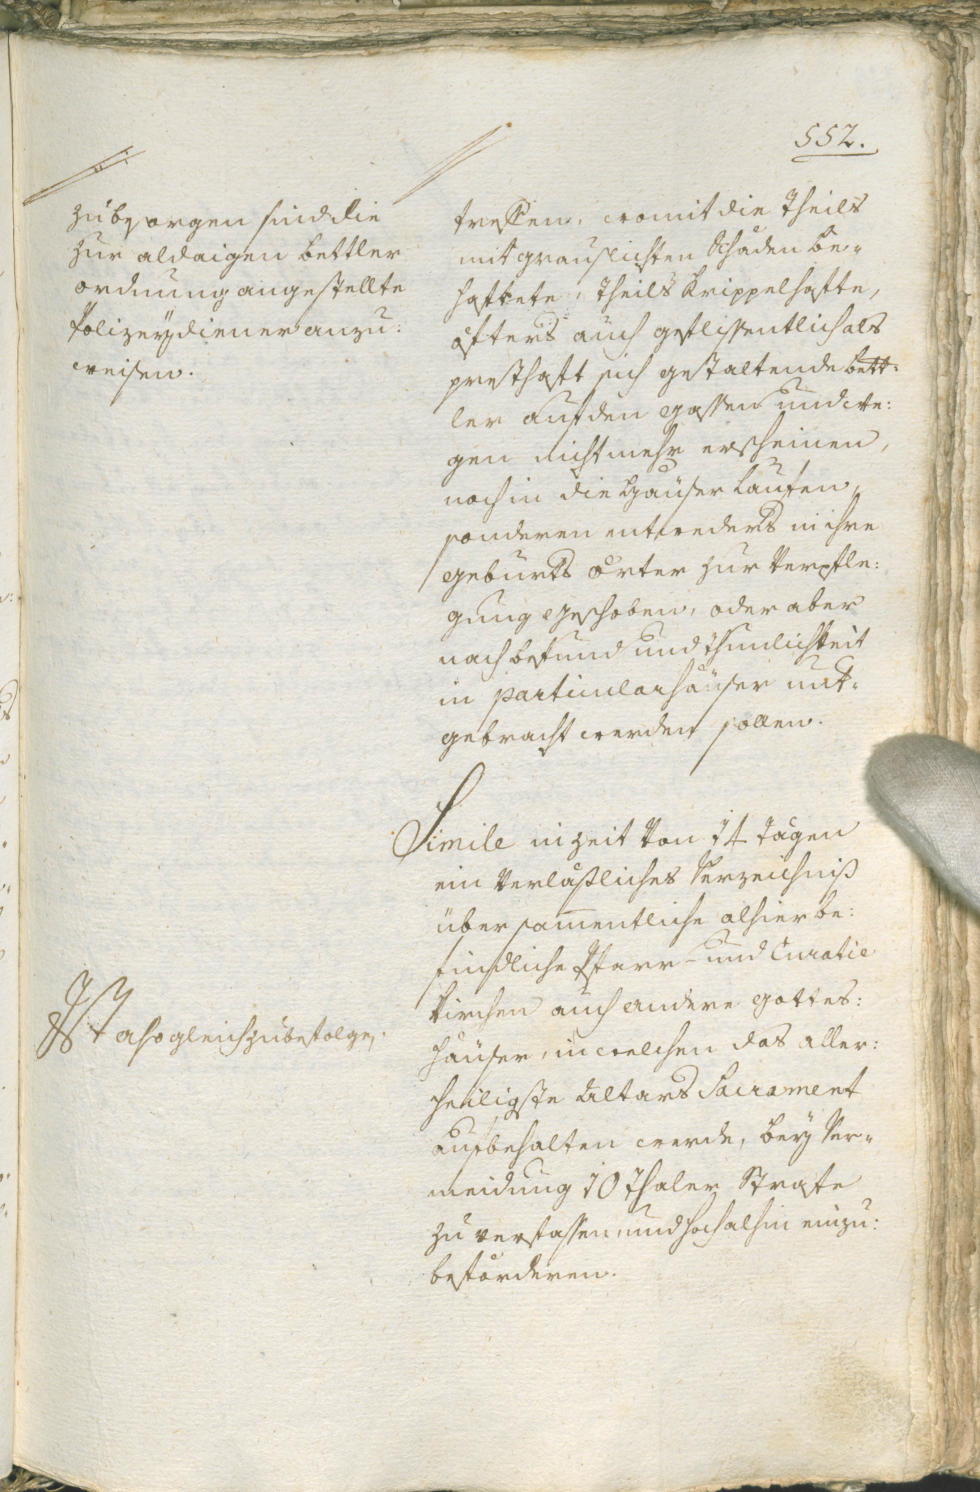 552.
zu besorgen sind die
zur aldaigen bettler
ordnung angestellte
Polizeydiener anzu:
weisen.
treffen, womit die theils
mit grauslichsten Schäden be-
haftete, theils krippelhafte,
öfters auch geflissentlich als
presthaft sich gestaltende bett-
ler auf den gassen und we:
gen nicht mehr erscheinen,
noch in die Häuser laufen,
sonderen entweders in ihre
geburts örter zur Verpfle:
gung geschoben, oder aber
nach befund und thunlichkeit
in particularhäuser unt-
gebracht werden sollen.
Simile in zeit von 14 tägen
ein verläßliches Verzeichniß
über sammentliche alhier be:
findliche Pfarr- und Curatie
kirchen auch andere gottes:
häuser, in welchen das aller:
heiligste Altars Sacrament
aufbehalten werde, bey Ver-
meidung 10 thaler Strafe
zu verfassen, und hochalhin einzu:
beförderen.
Ist also gleich zu befolgen.